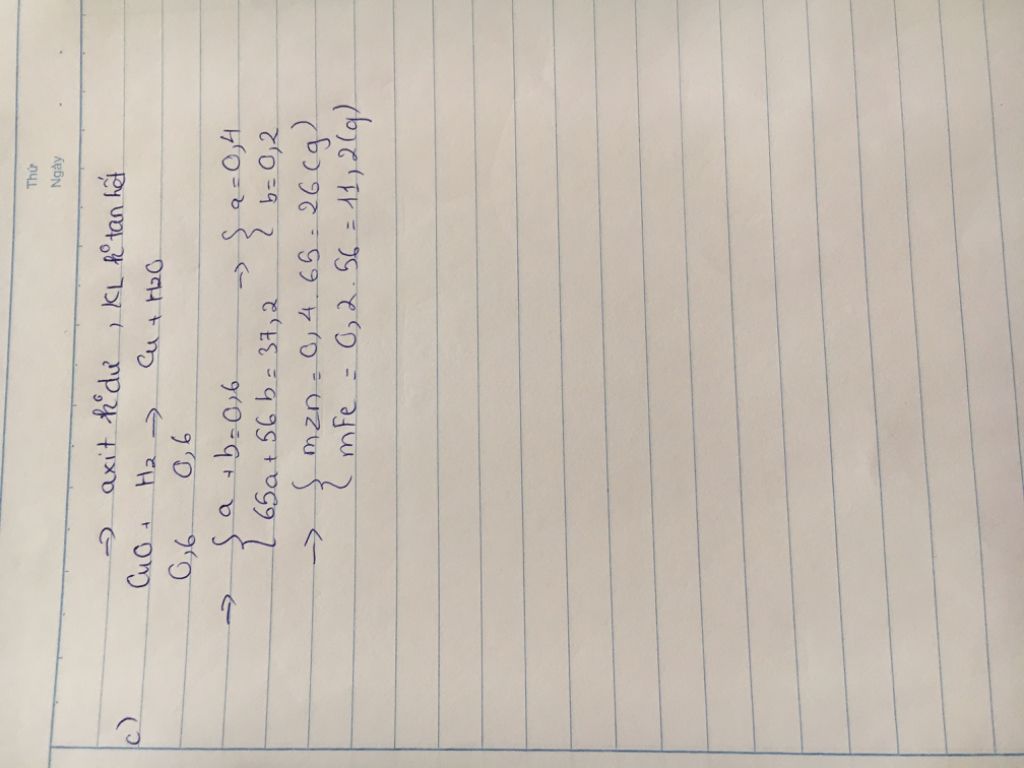 Thứ
Ngày
=> axit k° dư, KL k° tan hết
c) CuO + H2 -> Cu + H2O
0,6 0,6
-> { a + b = 0,6 -> { a = 0,4
{ 65a + 56b = 37,2 { b = 0,2
-> { mZn = 0,4 . 65 = 26(g)
{ mFe = 0,2 . 56 = 11,2(g)